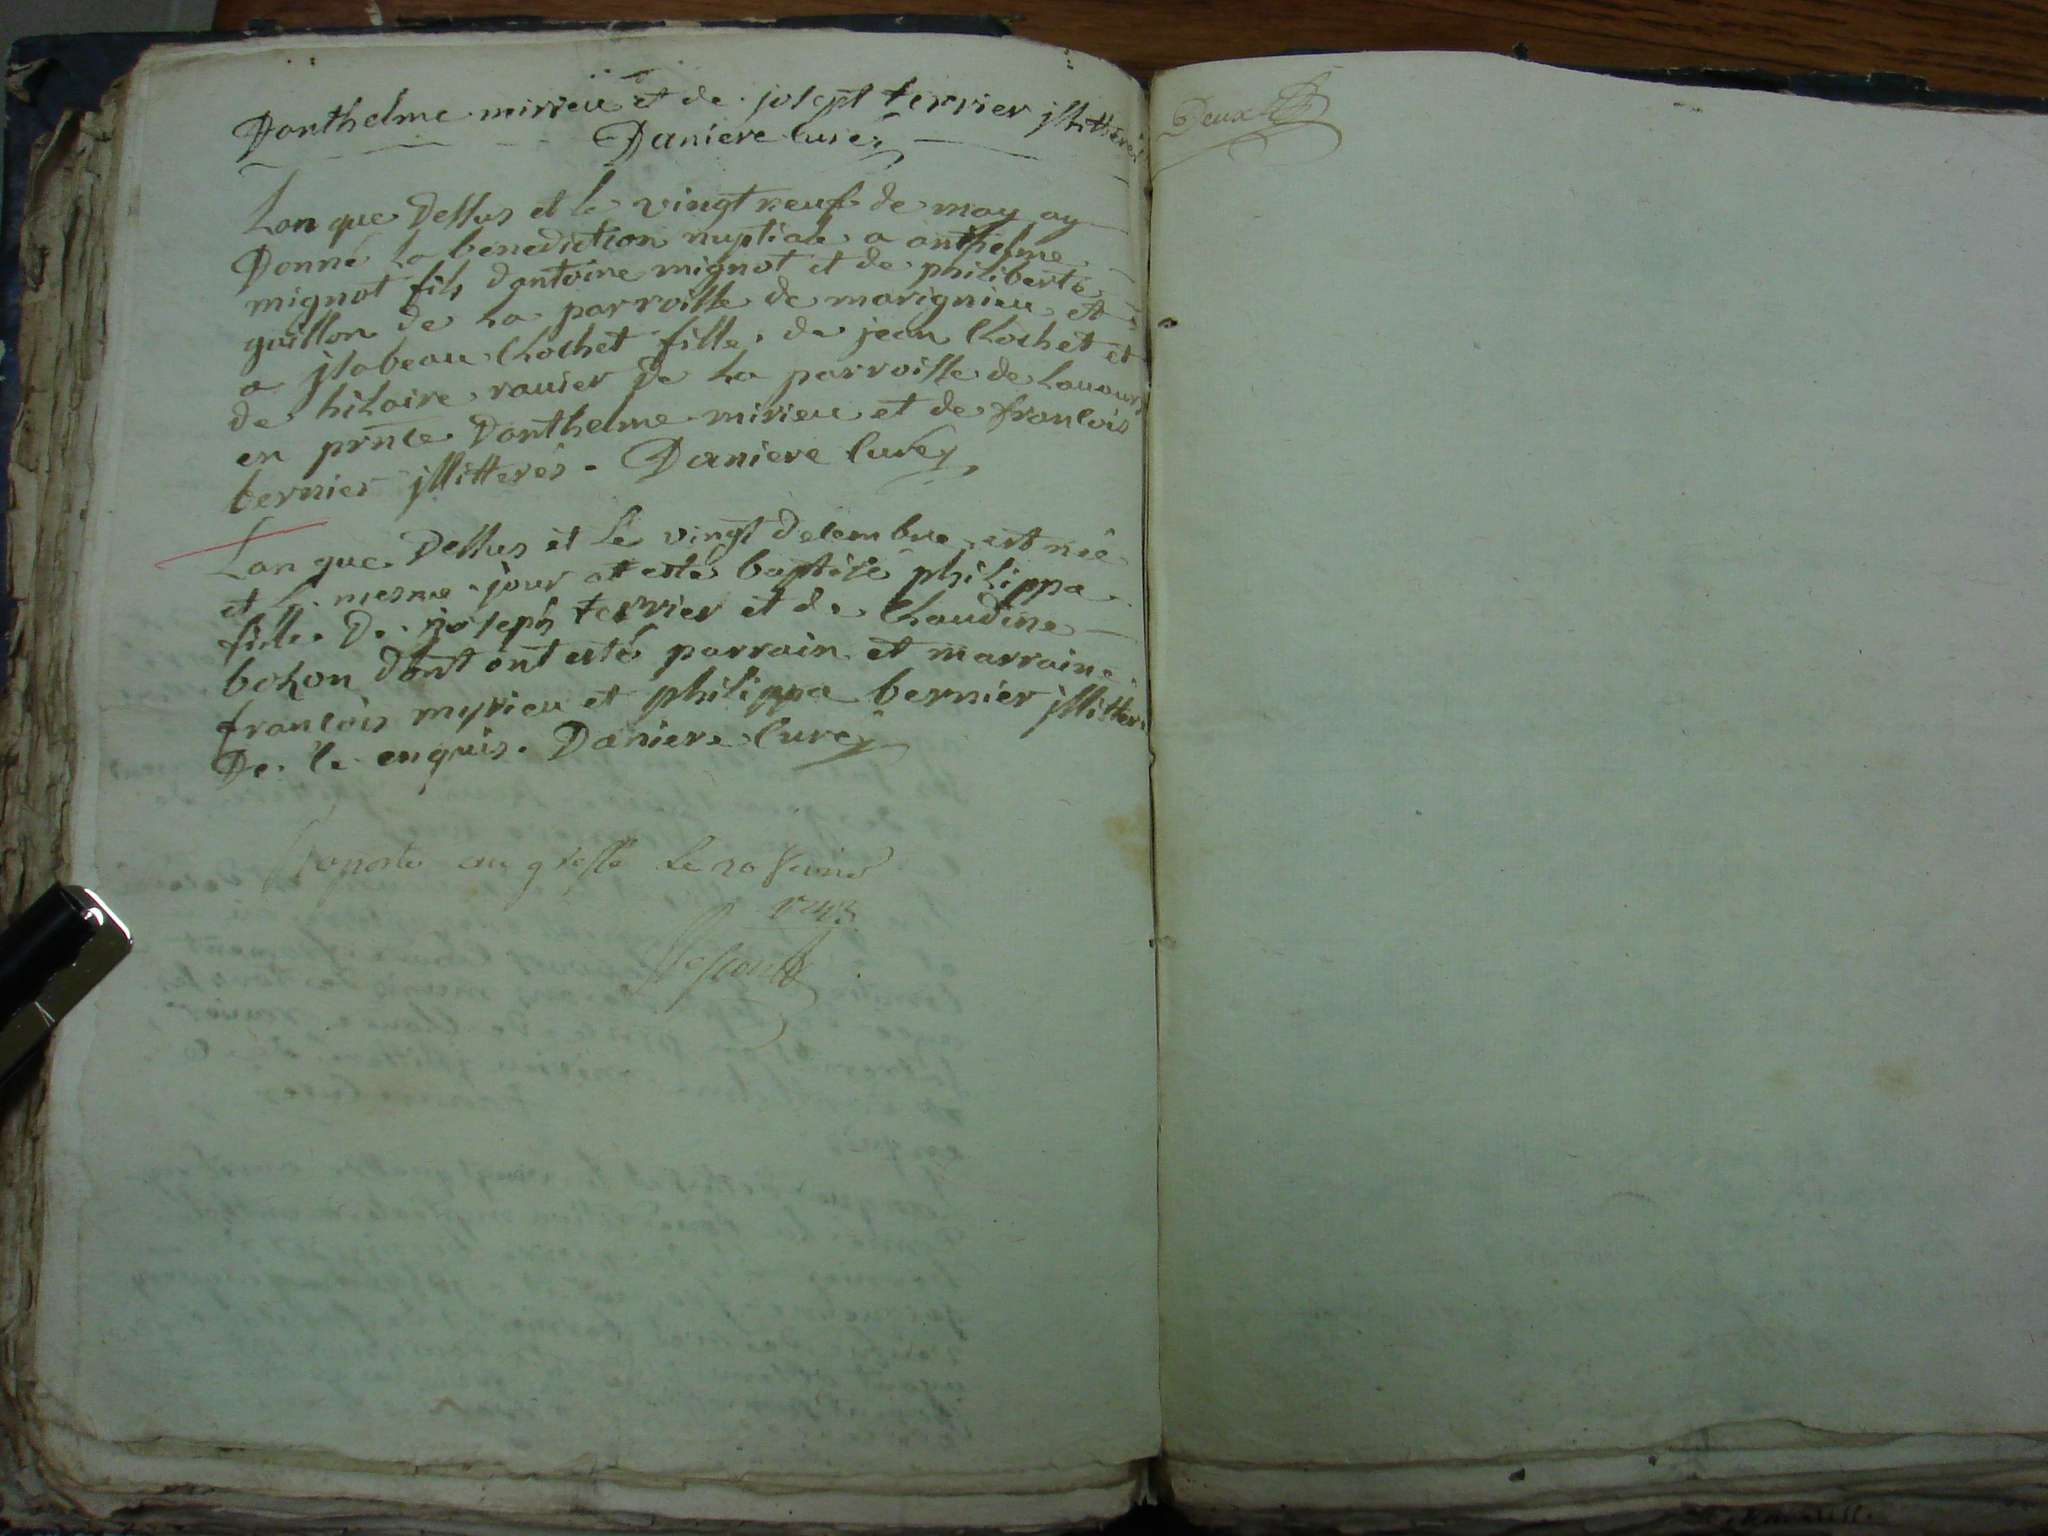 Danthelme mirieu et de josept terrier jllitterés
Daniere Curé
Lan que dessus et le vingt neuf de may ay
Donné la benediction nuptiale a anthelme
mignot fils dantoine mignot et de philiberte
guillon de la parroisse de marignieu et
a jsabeau Chochet fille de jean Chochet et
de hilaire rauier de la parroisse de Lauours
en prnce Danthelme mirieu et de francois
bernier jllitterés. Daniere Curé
Lan que dessus et le vingt decembre est née
et le mesme jour at esté baptisé philippa
fille de joseph terrier et de Claudine
bohon dont ont estés parrain et marraine
francois myrieu et philippa bernier jllitter.
De ce enquis. Daniere Curé
aporté au greffe le 20 Juin
1743
Deux